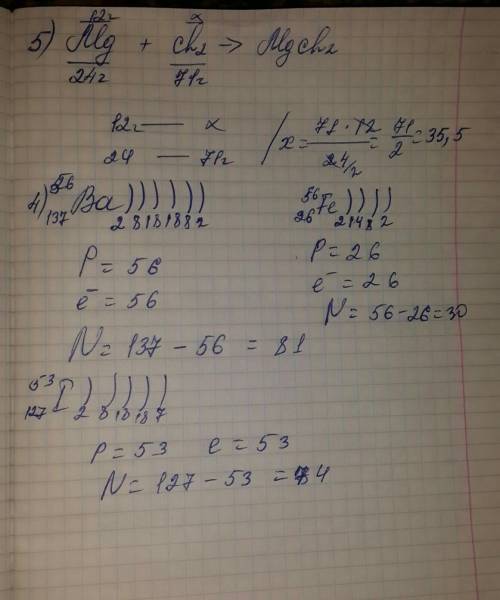 12г x
5) Mg + Ch₂ → MgCh₂
24г 71г
12г — x / x = 71 · 12 / 24 = 71 / 2 = 35,5
24 — 71г
4) 56 137 Ba ) ) ) ) ) ) 2 8 18 18 8 2
56 26 Fe ) ) ) ) 2 14 8 2
P = 56
e⁻ = 56
N = 137 - 56 = 81
P = 26
e⁻ = 26
N = 56 - 26 = 30
53 127 I ) ) ) ) ) 2 8 18 18 7
P = 53 e = 53
N = 127 - 53 = 84